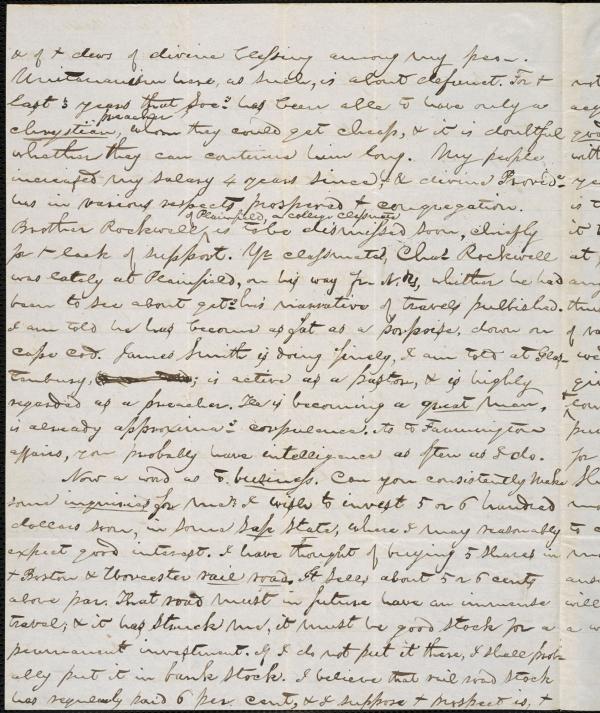 & of + dews of divine blessing among my peo.
Unitarianism here, as such, is about defunct. For +
last 3 years that Soc? has been able to have only a
chrystian, preacher whom they could get cheap, & it is doubtful
whether they can continue him long. My people
increased my salary 4 years since, & divine Provid?
has in various respects prospered + congregation.
of Plainfield, a college classmate
Brother Rockwell, is to be dismissed soon, chiefly
for + lack of support. Yr classmate, Chas Rockwell
was lately at Plainfield, on his way for N. Y., whether he had
been to see about getg his narrative of travels published.
I am told he has become as fat as a porpoise, down on
cape cod. James Smith is doing finely, I am told at Glas-
tenbury, is active as a pastor, & is highly
regarded as a preacher. He is becoming a great man,
is already approximag corpulence. As to Farmington
affairs, you probably have intelligence as often as I do.
Now a word as to business. Can you consistently make
some inquiries for me? I wish to invest 5 or 6 hundred
dollars soon, in some safe State, where I may reasonably
expect good interest. I have thought of buying 5 shares in
+ Boston & Worcester rail road. It sells about 5 or 6 cents
above par. That road must in future have an immense
travel, & it has struck me, it must be good stock for a
permanent investment. If I do not put it there, I shall prob-
ably put it in bank stock. I believe that rail road stock
has regularly paid 6 per. cent, & I suppose + prospect is, +